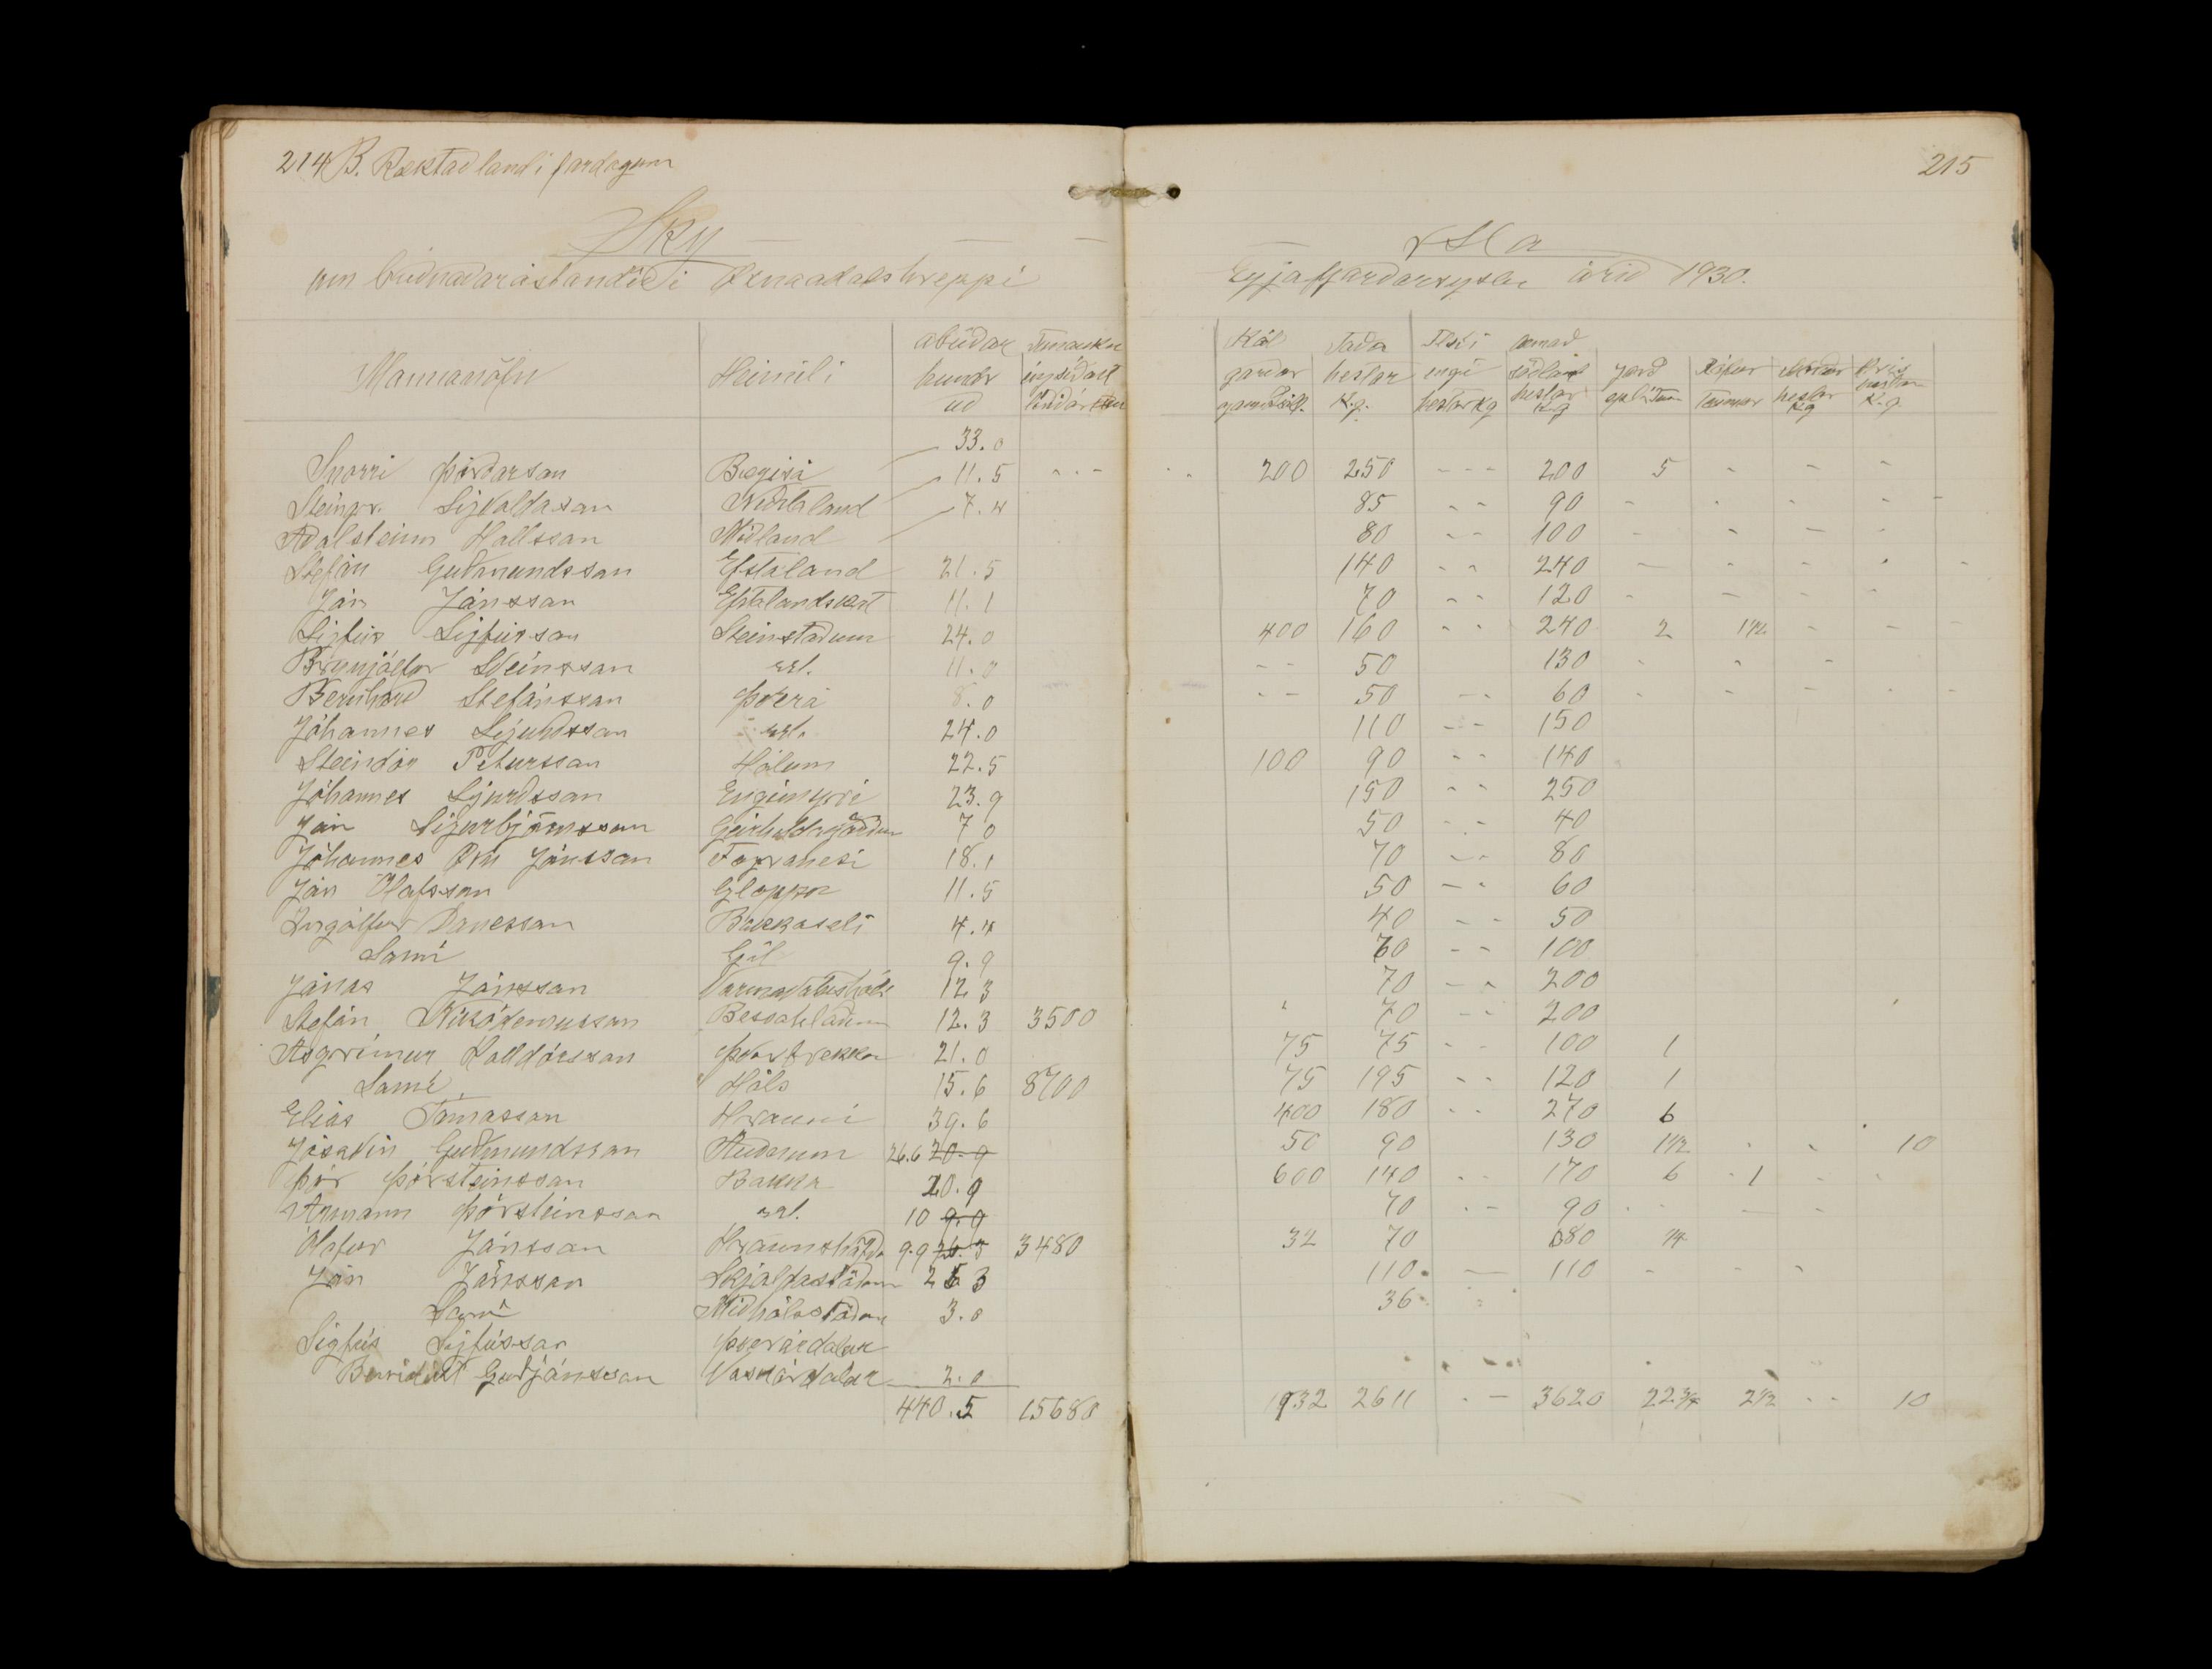 214 B. Ræktað land í fardögum
215
Ský
rsla
um búnaðarástandið í Öxnadalshreppi
Eyjafjarðarsyslu árið 1930.
Mannanöfn Heimili ábúðar hundr uð
Kál garðar Taða hestar K.g. engi hestar Kg hestar Kg jarð epli Tun Rófur Tunnur hestar Kg Hrís hestar K.g.
33.0
Snorri Þórðarson Bægisá 11.5 - - - 200 250 - - - 200 5 - - -
Steingr. Sigvaldason Neðstaland 7.4 85 - - 90 - - - -
Aðalsteinn Hallsson Miðland 80 - - 100 - - - -
Stefán Guðmundsson Efstaland 21.5 140 - - 240 - - - - -
Jón Jónsson Efstalandskot 11.1 70 - - 120 - - - -
Sigfús Sigfússon Steinstöðum 24.0 400 160 - - 240 2 1 1/2 - - -
Brynjólfur Sveinsson sst. 11.0 - - 50 130 - - -
Bernharð Stefánsson Þverá 8.0 - - 50 - - 60 - - - - -
Jóhannes Sigurðsson sst. 24.0 110 - - 150
Steindór Pétursson Hólum 22.5 100 90 - - 140
Jóhannes Sigurðsson Engimýri 23.9 150 - - 250
Jón Sigurbjörnsson Geirhildargörðum 7 0 50 - - 40
Jóhannes Örn Jónsson Fagranesi 18.1 70 - - 80
Jón Ólafsson Gloppu 11.5 50 - - 60
Ingólfur Daviesson Bakkaseli 4.4 40 - - 50
Sami Gil 9.9 70 - - 100
Jónas Jónsson Varmavatnshólar 12 3 70 - - 200
Stefán Nikódemusson Bessahlaðum 12.3 3500 70 - - 200
Ásgrímur Halldórsson Þverbrekka 21.0 75 75 - - 100 1
Sami Háls 15.6 8700 75 195 - - 120 1
Elías Tómasson Hrauni 39.6 400 180 - - 270 6
Jósavin Guðmundsson Auðnum 26.6 20.9 50 90 130 1 1/2 - - 10
Þór Þórsteinsson Bakka 20.9 600 140 - - 170 6 1 - -
Ármann Þórsteinsson sst. 10 9.9 70 - - 90 - - -
Ólafur Jónsson Hraunshöfða 9.9 26.3 3480 32 70 80 1/4
Jón Jónsson Skjaldastöðum 25 3 110 - 110 - - -
Sami Miðhálsstöðum 3.0 36 - -
Sigfús Sigfússon Þverárdalur
Benidikt Guðjónsson Vaskárdalur 2.0
440.5 15680 1932 2611 - - 3620 22 3/4 2 1/2 - - 10